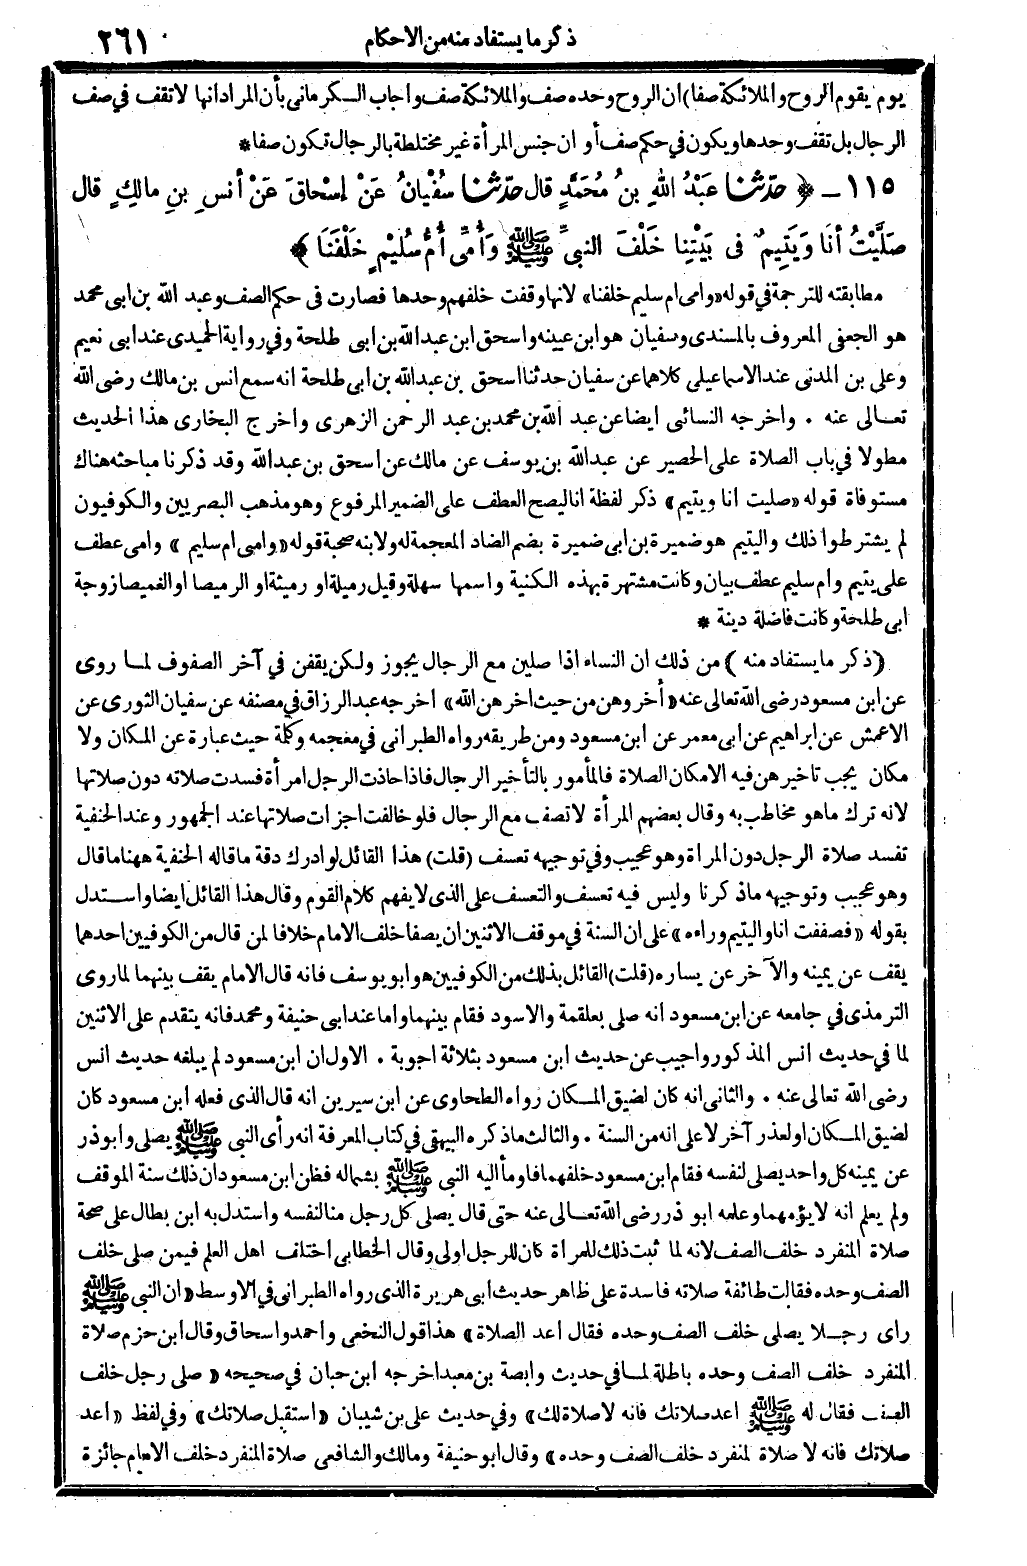 ذكر ما يستفاد منه من الاحكام ٢٦١
يوم يقوم الروح والملائكة صفا) ان الروح وحده صف والملائكة صف واجاب الكرمانى بأن المراد انها لا تقف في صف
الرجال بل تقف وحدها ويكون في حكم صف أو ان جنس المرأة غير مختلطة بالرجال تكون صفا *
١١٥ ـ ﴿ حدّثنا عَبْدُ اللهِ بنُ مُحَمَّدٍ قال حدّثنا سُفْيانُ عَنْ إسْحاقَ عَنْ أنَسِ بنِ مالِكٍ قال
صَلَّيْتُ أنَا وَيَتِيمٌ فى بَيْتِنا خَلْفَ النبيِّ ﷺ وَأُمِّى أُمُّ سُلَيْمٍ خَلْفَنَا ﴾
مطابقته للترجمة في قوله «وامى ام سليم خلفنا» لانها وقفت خلفهم وحدها فصارت فى حكم الصف وعبد الله بن ابى محمد
هو الجعفى المعروف بالمسندى وسفيان هو ابن عيينه واسحق ابن عبد الله بن ابى طلحة وفي رواية الحميدى عند ابى نعيم
وعلى بن المدنى عند الاسماعيلى كلاهما عن سفيان حدثنا اسحق بن عبد الله بن ابى طلحة انه سمع انس بن مالك رضى الله
تعالى عنه . واخرجه النسائى ايضا عن عبد الله بن محمد بن عبد الرحمن الزهرى واخرج البخارى هذا الحديث
مطولا في باب الصلاة على الحصير عن عبد الله بن يوسف عن مالك عن اسحق بن عبد الله وقد ذكرنا مباحثه هناك
مستوفاة قوله «صليت انا ويتيم» ذكر لفظة انا ليصح العطف على الضمير المرفوع وهو مذهب البصريين والكوفيون
لم يشترطوا ذلك واليتيم هو ضميرة بن ابى ضميرة بضم الضاد المعجمة له ولابنه صحبة قوله «وامى ام سليم» وامى عطف
على يتيم وام سليم عطف بيان وكانت مشتهرة بهذه الكنية واسمها سهلة وقيل رميلة او رميثة او الرميصا او الغميصا زوجة
ابى طلحة وكانت فاضلة دينة *
(ذكر ما يستفاد منه) من ذلك ان النساء اذا صلين مع الرجال يجوز ولكن يقفن في آخر الصفوف لما روى
عن ابن مسعود رضى الله تعالى عنه «أخروهن من حيث اخرهن الله» اخرجه عبد الرزاق في مصنفه عن سفيان الثورى عن
الاعمش عن ابراهيم عن ابى معمر عن ابن مسعود ومن طريقه رواه الطبرانى في معجمه وكلمة حيث عبارة عن المكان ولا
مكان يجب تاخيرهن فيه الا مكان الصلاة فالمأمور بالتأخير الرجال فاذا حاذت الرجل امرأة فسدت صلاته دون صلاتها
لانه ترك ما هو مخاطب به وقال بعضهم المرأة لا تصف مع الرجال فلو خالفت اجزات صلاتها عند الجمهور وعند الحنفية
تفسد صلاة الرجل دون المراة وهو عجيب وفي توجيهه تعسف (قلت) هذا القائل لو ادرك دقة ما قاله الحنفية ههنا ما قال
وهو عجيب وتوجيهه ما ذكرنا وليس فيه تعسف والتعسف على الذى لا يفهم كلام القوم وقال هذا القائل ايضا واستدل
بقوله «فصففت انا واليتيم وراءه» على ان السنة في موقف الاثنين ان يصفا خلف الامام خلافا لمن قال من الكوفيين احدهما
يقف عن يمينه والآخر عن يساره (قلت) القائل بذلك من الكوفيين هو ابو يوسف فانه قال الامام يقف بينهما لما روى
الترمذى في جامعه عن ابن مسعود انه صلى بعلقمة والاسود فقام بينهما واما عند ابى حنيفة ومحمد فانه يتقدم على الاثنين
لما في حديث انس المذكور واجيب عن حديث ابن مسعود بثلاثة اجوبة . الاول ان ابن مسعود لم يبلغه حديث انس
رضى الله تعالى عنه . والثانى انه كان لضيق المكان رواه الطحاوى عن ابن سيرين انه قال الذى فعله ابن مسعود كان
لضيق المكان او لعذر آخر لا على انه من السنة . والثالث ما ذكره البيهقى في كتاب المعرفة انه رأى النبى ﷺ يصلى وابو ذر
عن يمينه كل واحد يصلى لنفسه فقام ابن مسعود خلفهما فاومأ اليه النبى ﷺ بشماله فظن ابن مسعود ان ذلك سنة الموقف
ولم يعلم انه لا يؤمهما وعلمه ابو ذر رضى الله تعالى عنه حتى قال يصلى كل رجل منا لنفسه واستدل به ابن بطال على صحة
صلاة المنفرد خلف الصف لانه لما ثبت ذلك للمرأة كان للرجل اولى وقال الخطابى اختلف اهل العلم فيمن صلى خلف
الصف وحده فقالت طائفة صلاته فاسدة على ظاهر حديث ابى هريرة الذى رواه الطبرانى في الاوسط «ان النبى ﷺ
راى رجلا يصلى خلف الصف وحده فقال أعد الصلاة» هذا قول النخعى واحمد واسحاق وقال ابن حزم صلاة
المنفرد خلف الصف وحده باطلة لما في حديث وابصة بن معبد اخرجه ابن حبان في صحيحه «صلى رجل خلف
الصف فقال له ﷺ اعد صلاتك فانه لا صلاة لك» وفي حديث على بن شيبان «استقبل صلاتك» وفي لفظ «أعد
صلاتك فانه لا صلاة لمنفرد خلف الصف وحده» وقال ابو حنيفة ومالك والشافعى صلاة المنفرد خلف الامام جائزة